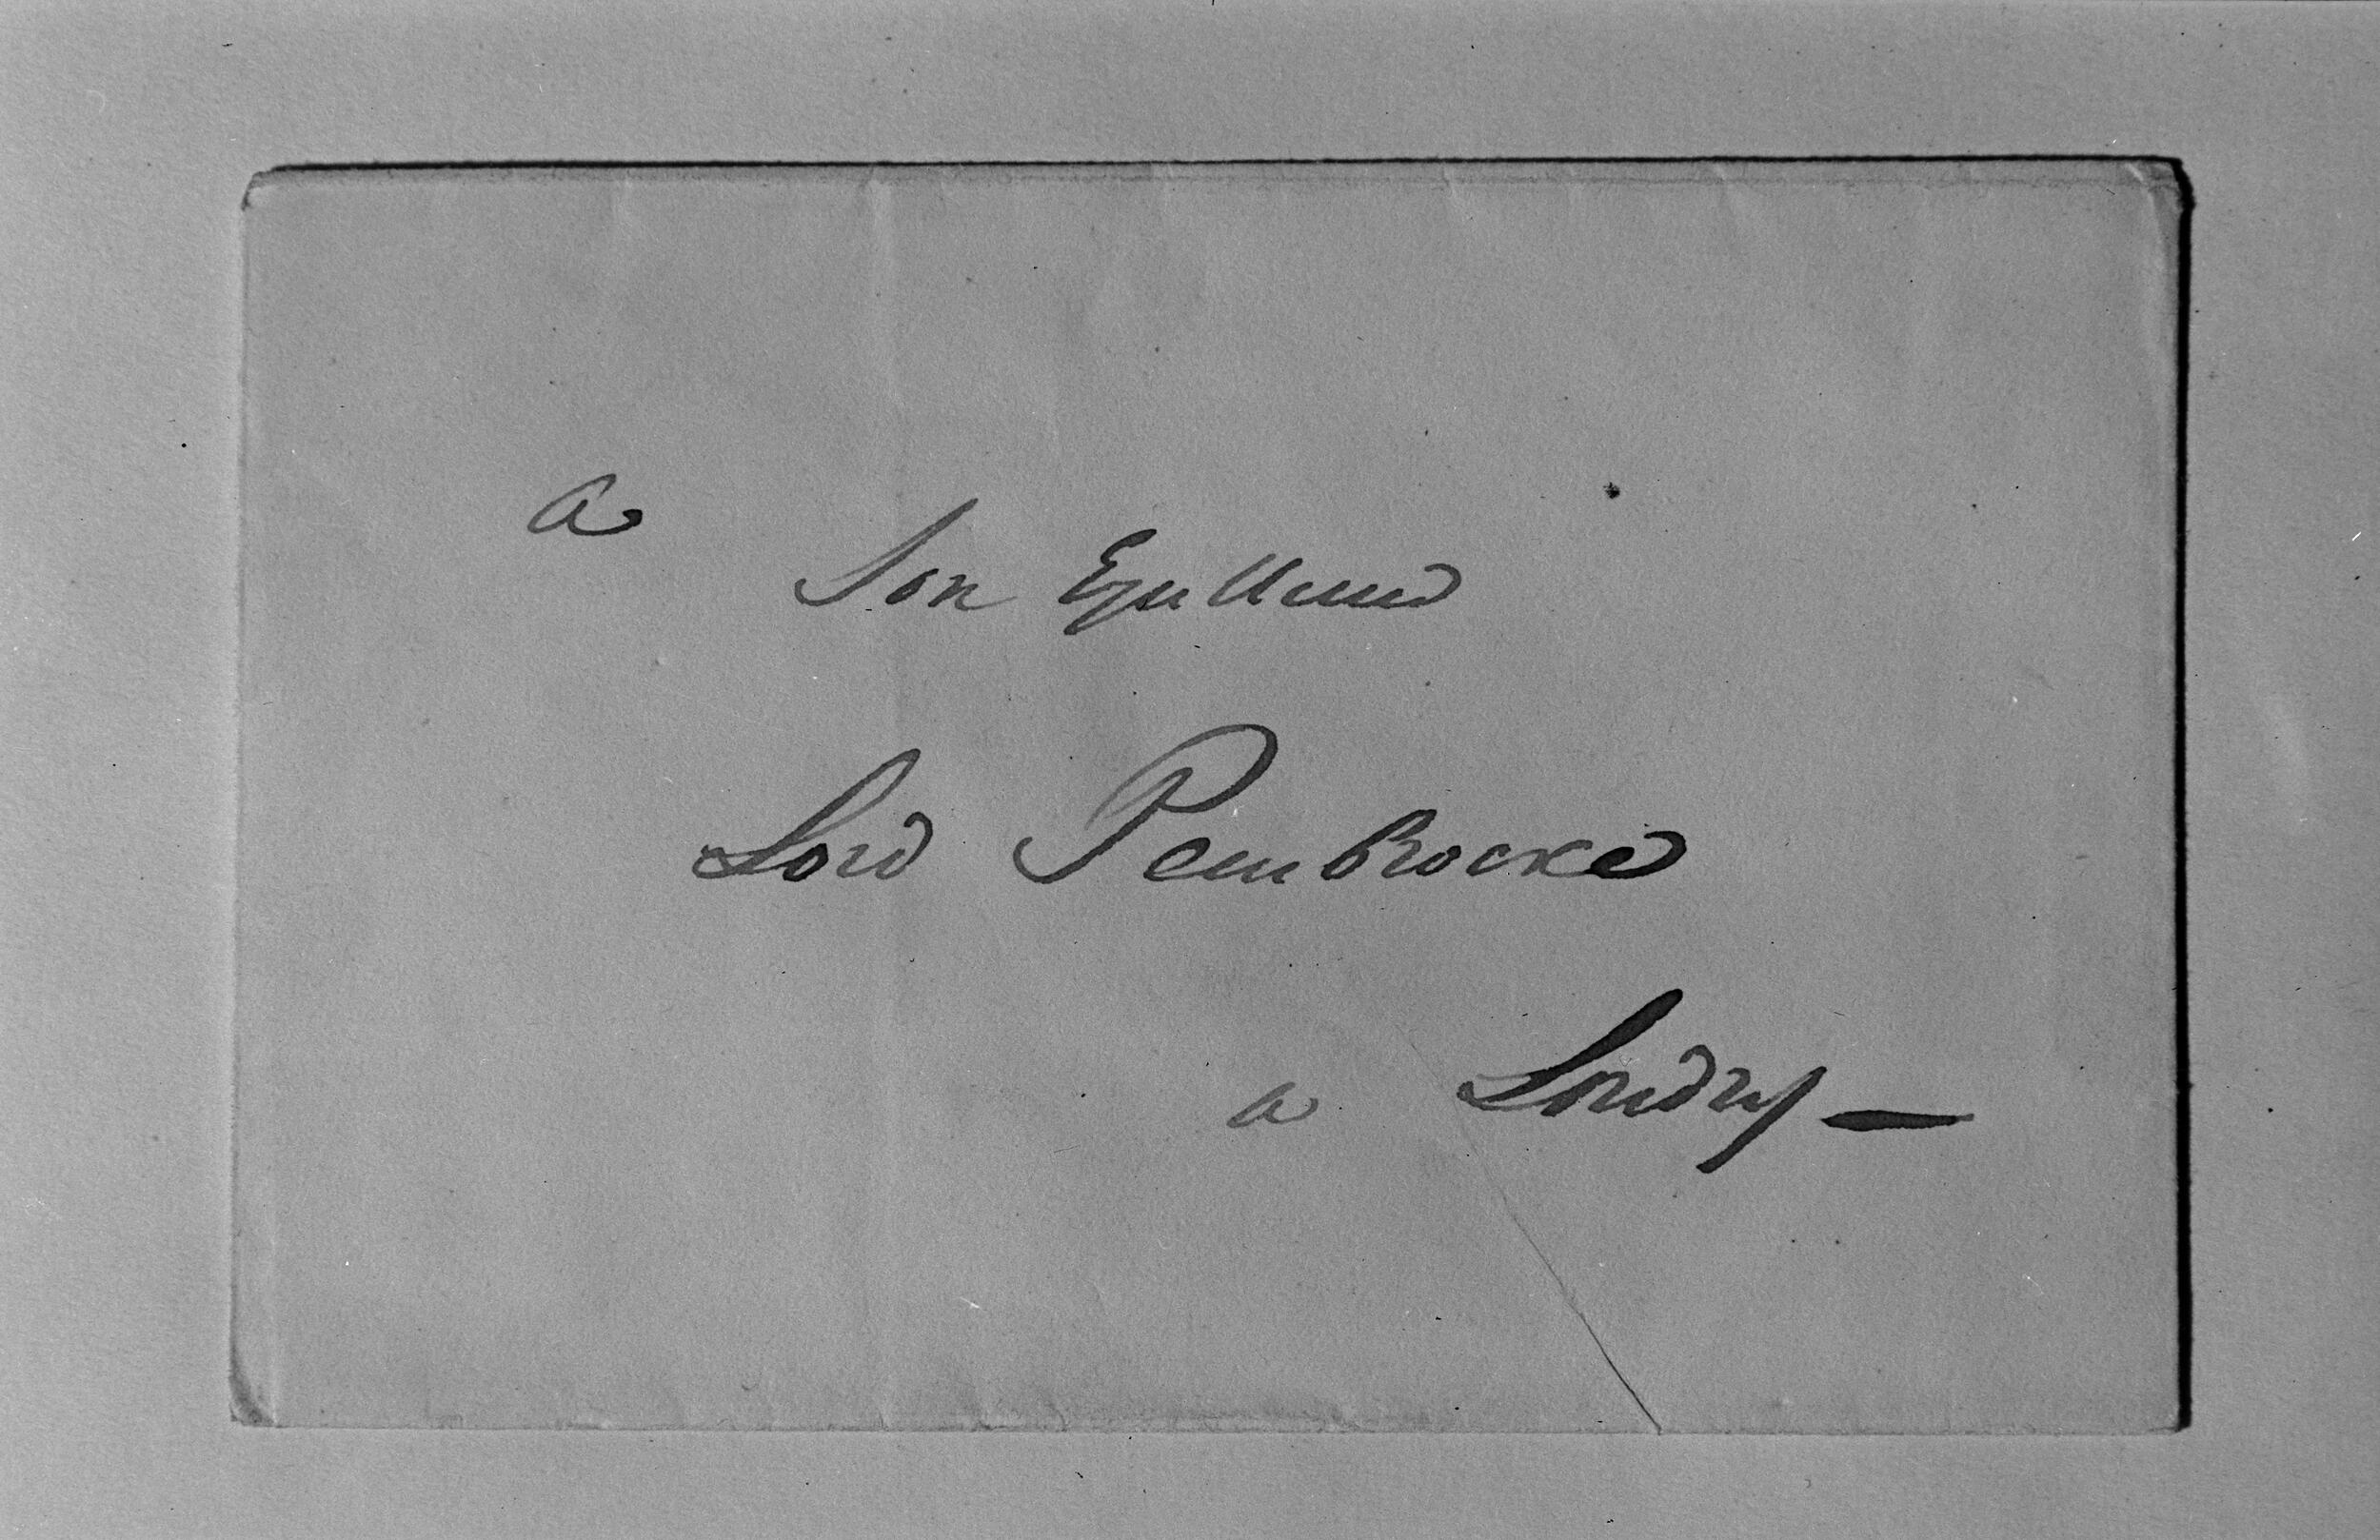 a
Son Excellence
Lord Pembrocke
a Londres —